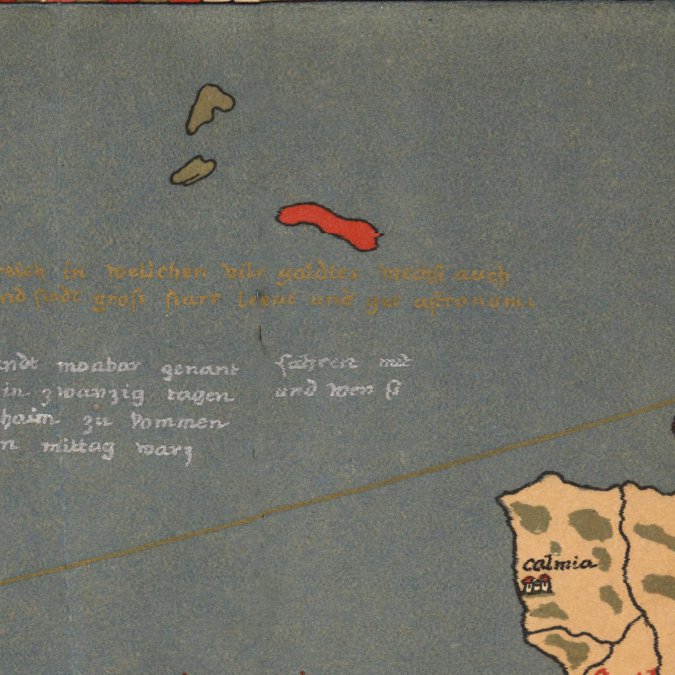 in welichen vil goldes wechst auch
und sindt gross starx leut und gut astronomi
andt moabar genant fahren mit
in zwanzig tagen und wen si
haim zu kommen
n mittag warz
calmia